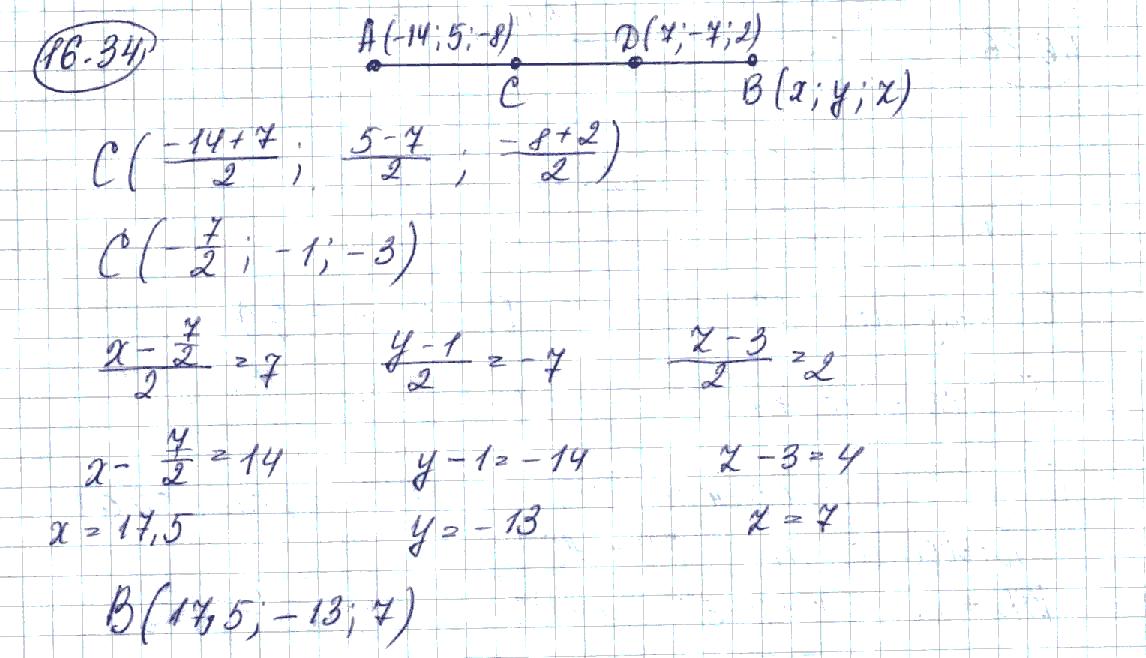 16.34,
A(-14; 5; -8) D(7; -7; 2)
C B(x; y; z)
C(\frac{-14+7}{2}; \frac{5-7}{2}; \frac{-8+2}{2})
C(-\frac{7}{2}; -1; -3)
\frac{x-\frac{7}{2}}{2} = 7 \frac{y-1}{2} = -7 \frac{z-3}{2} = 2
x - \frac{7}{2} = 14 y - 1 = -14 z - 3 = 4
x = 17,5 y = -13 z = 7
B(17,5; -13; 7)